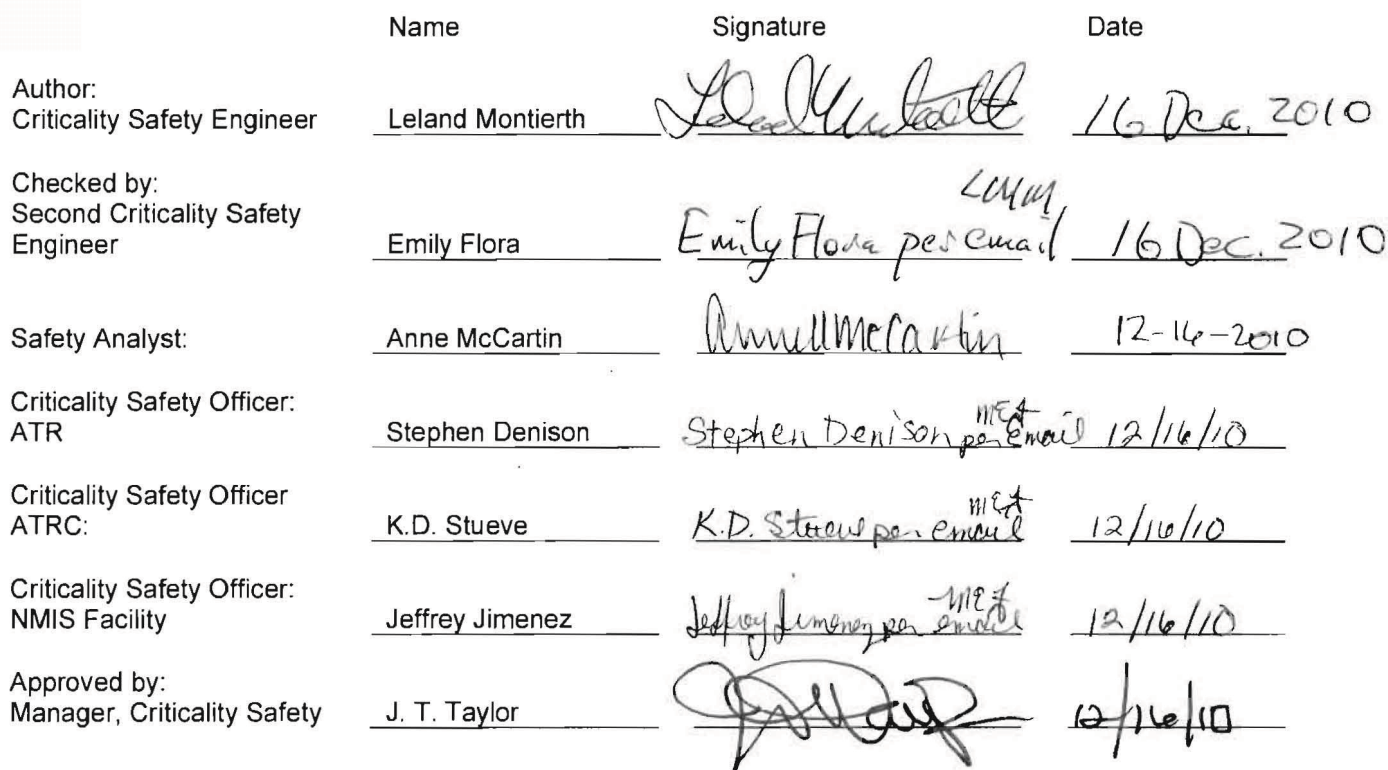 Name Signature Date
Author:
Criticality Safety Engineer Leland Montierth 16 Dec. 2010
Checked by:
Second Criticality Safety
Engineer Emily Flora Emily Flora per email 16 Dec. 2010
Safety Analyst: Anne McCartin 12-16-2010
Criticality Safety Officer:
ATR Stephen Denison Stephen Denison per email 12/16/10
Criticality Safety Officer
ATRC: K.D. Stueve K.D. Stueve per email 12/16/10
Criticality Safety Officer:
NMIS Facility Jeffrey Jimenez Jeffrey Jimenez per email 12/16/10
Approved by:
Manager, Criticality Safety J. T. Taylor 12/16/10